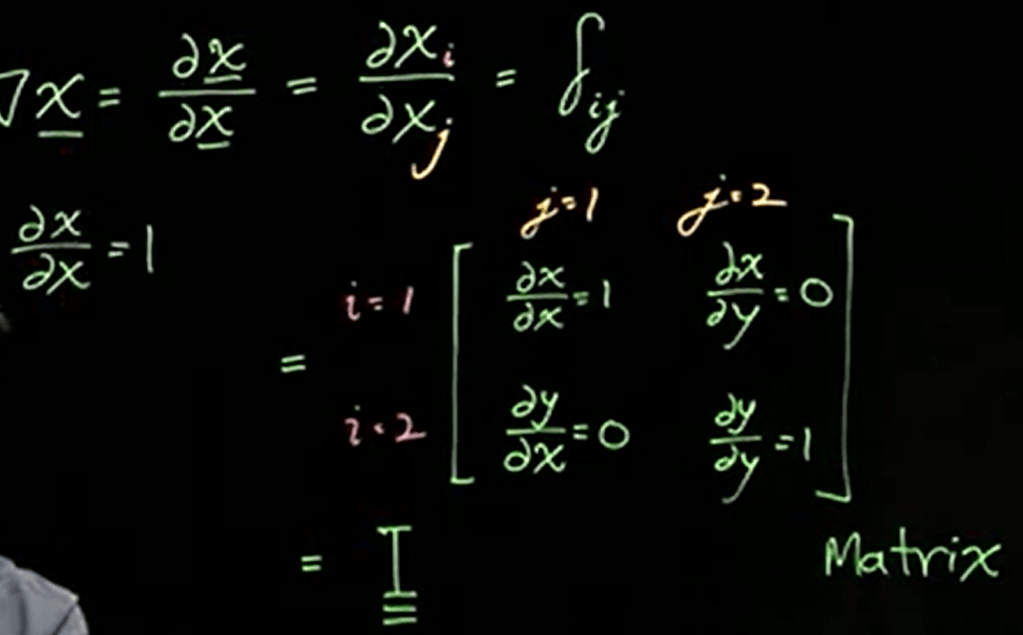 ∇x = ∂x/∂x = ∂xᵢ/∂xⱼ = δᵢⱼ
∂x/∂x = 1
j=1 j=2
i=1 [ ∂x/∂x = 1 ∂x/∂y = 0 ]
=
i=2 [ ∂y/∂x = 0 ∂y/∂y = 1 ]
= I
Matrix